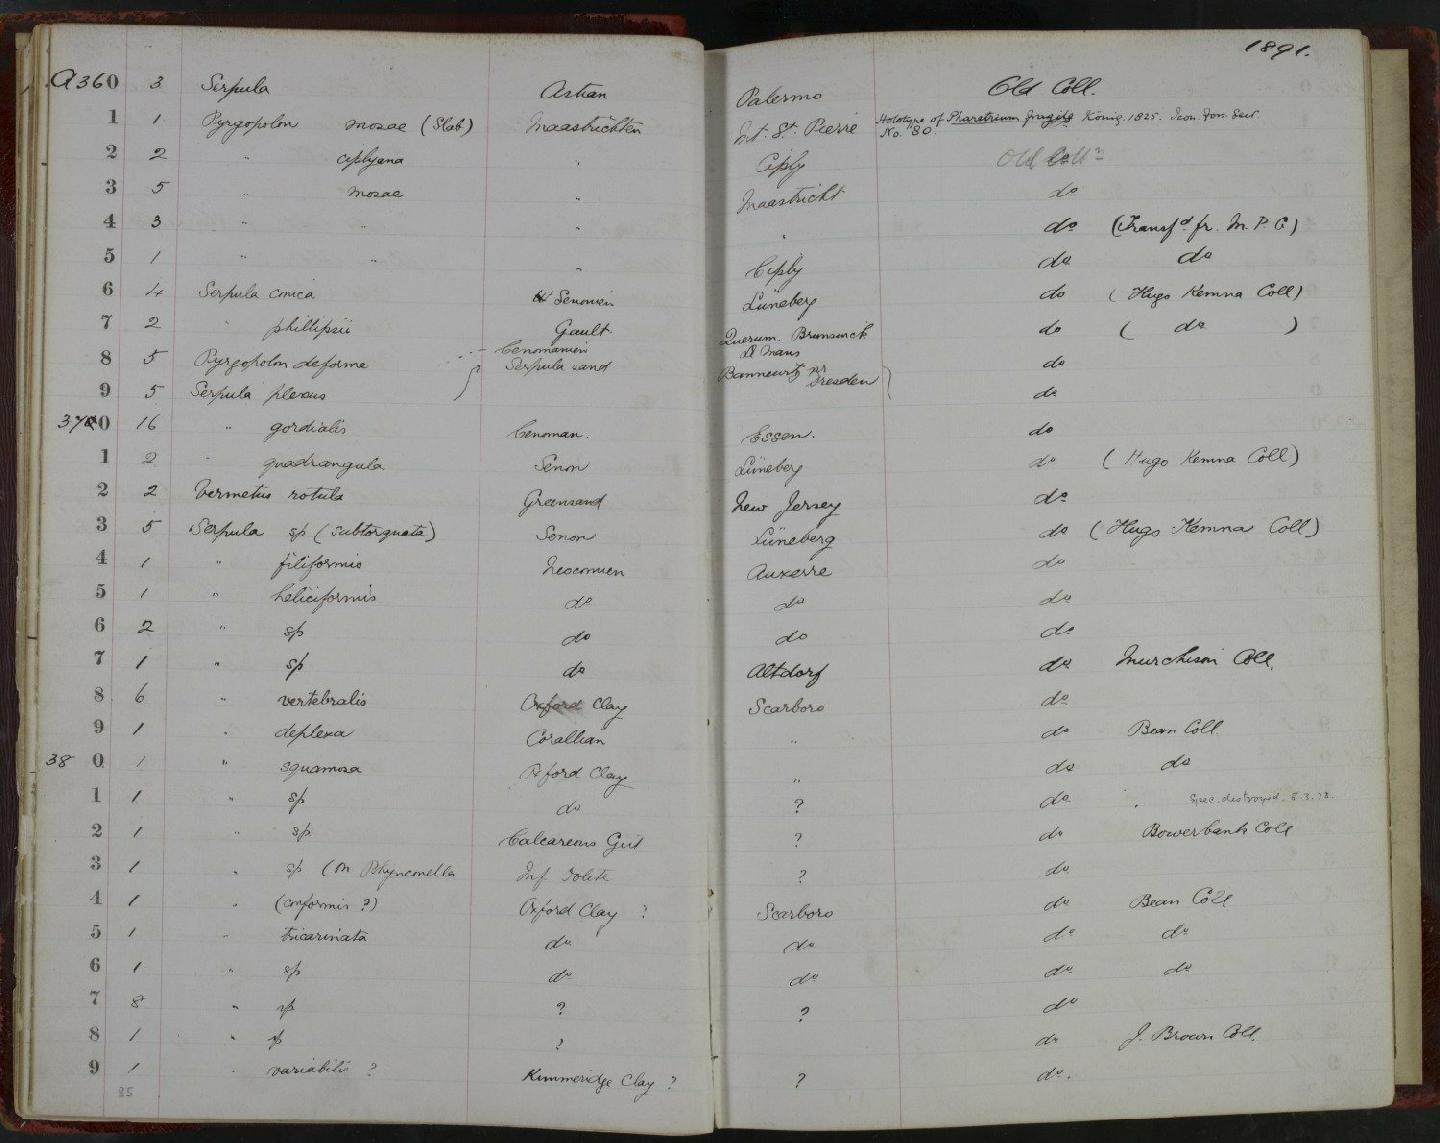 1891.
A360 3 Serpula Astian Palermo Old Coll.
1 1 Pyrgopolon mosae (Slab) Maastrichten Mt. St. Pierre Holotype of Pharetrium fragile König. 1825. Icon. Fon. Sect.
No. 80.
2 2 " ciplyana " Ciply Old Colln
3 5 " mosae " Maastricht do
4 3 " " " " do (Transfd fr. M. P. G)
5 1 " " " Ciply do do
6 4 Serpula conica Senonien Lüneberg do (Hugo Kemna Coll)
7 2 " phillipsii Gault. Querum. Brunswick do ( do )
8 5 Pyrgopolon deforme Cenomanien Le Mans do
9 5 Serpula plexus Serpula sand Bannewitz nr Dresden do
370 16 " gordialis Cenoman. Essen. do
1 2 " quadrangula Senon Lüneberg do (Hugo Kemna Coll)
2 2 Vermetus rotula Greensand New Jersey do
3 5 Serpula sp (subtorquata) Senon Lüneberg do (Hugo Kemna Coll)
4 1 " filiformis Neocomien Auxerre do
5 1 " heliciformis do do do
6 2 " sp do do do
7 1 " sp do Altdorf do Murchison Coll.
8 6 " vertebralis Oxford Clay Scarboro do
9 1 " deplexa Corallian " do Bean Coll.
380 1 " squamosa Oxford Clay " do do
1 1 " sp do ? do " Spec. destroyed. 8.3.78.
2 1 " sp Calcareous Grit ? do Bowerbank Coll
3 1 " sp (on Rhynconella Inf Oolite ? do
4 1 " (conformis ?) Oxford Clay ? Scarboro do Bean Coll
5 1 " tricarinata do do do do
6 1 " sp do do do do
7 8 " sp ? ? do
8 1 " sp ? do J. Brown Coll.
9 1 " variabilis ? Kimmeridge Clay ? ? do.
85